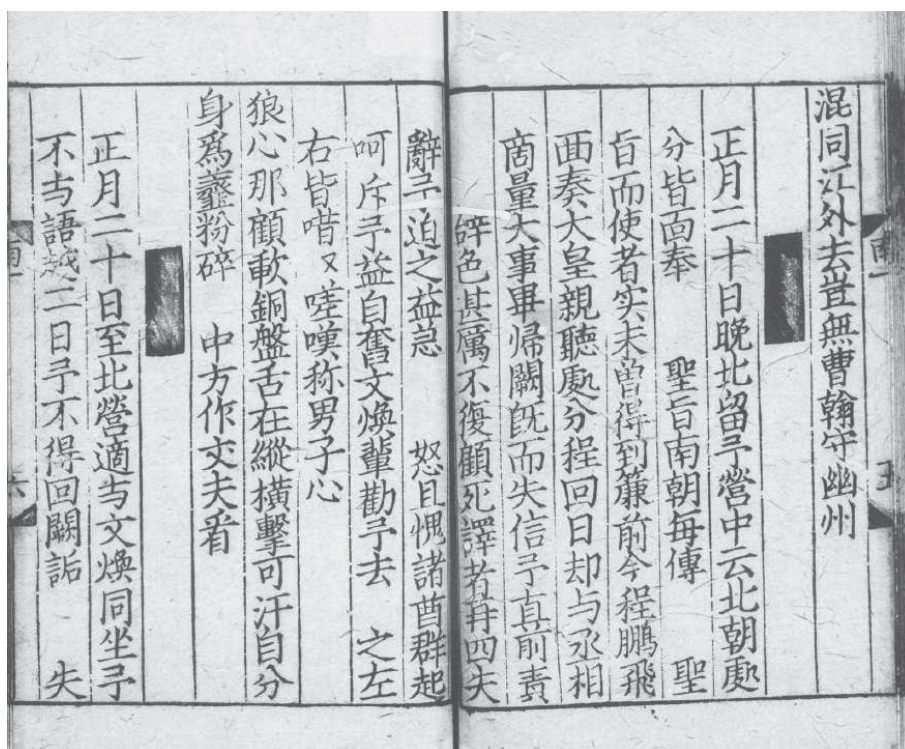 混同江外去豈無曹翰守幽州
正月二十日晚北留予營中云北朝處
分皆面奉　聖旨南朝每傳　聖
旨而使者实未曾得到簾前今程鵬飛
面奏大皇親聽處分程回日却与丞相
啇量大事畢歸闕既而失信予直前責
辤色甚厲不復顧死譯者再四失
辭予迫之益急　怒且愧諸酋群起
呵斥予益自奮文煥輩勸予去　之左
右皆唶又嗟嘆称男子心
狼心那顧歃銅盤舌在縱橫擊可汗自分
身爲虀粉碎　中方作丈夫看
正月二十日至北營適与文煥同坐予
不与語越二日予不得回闕詬　失
五
六